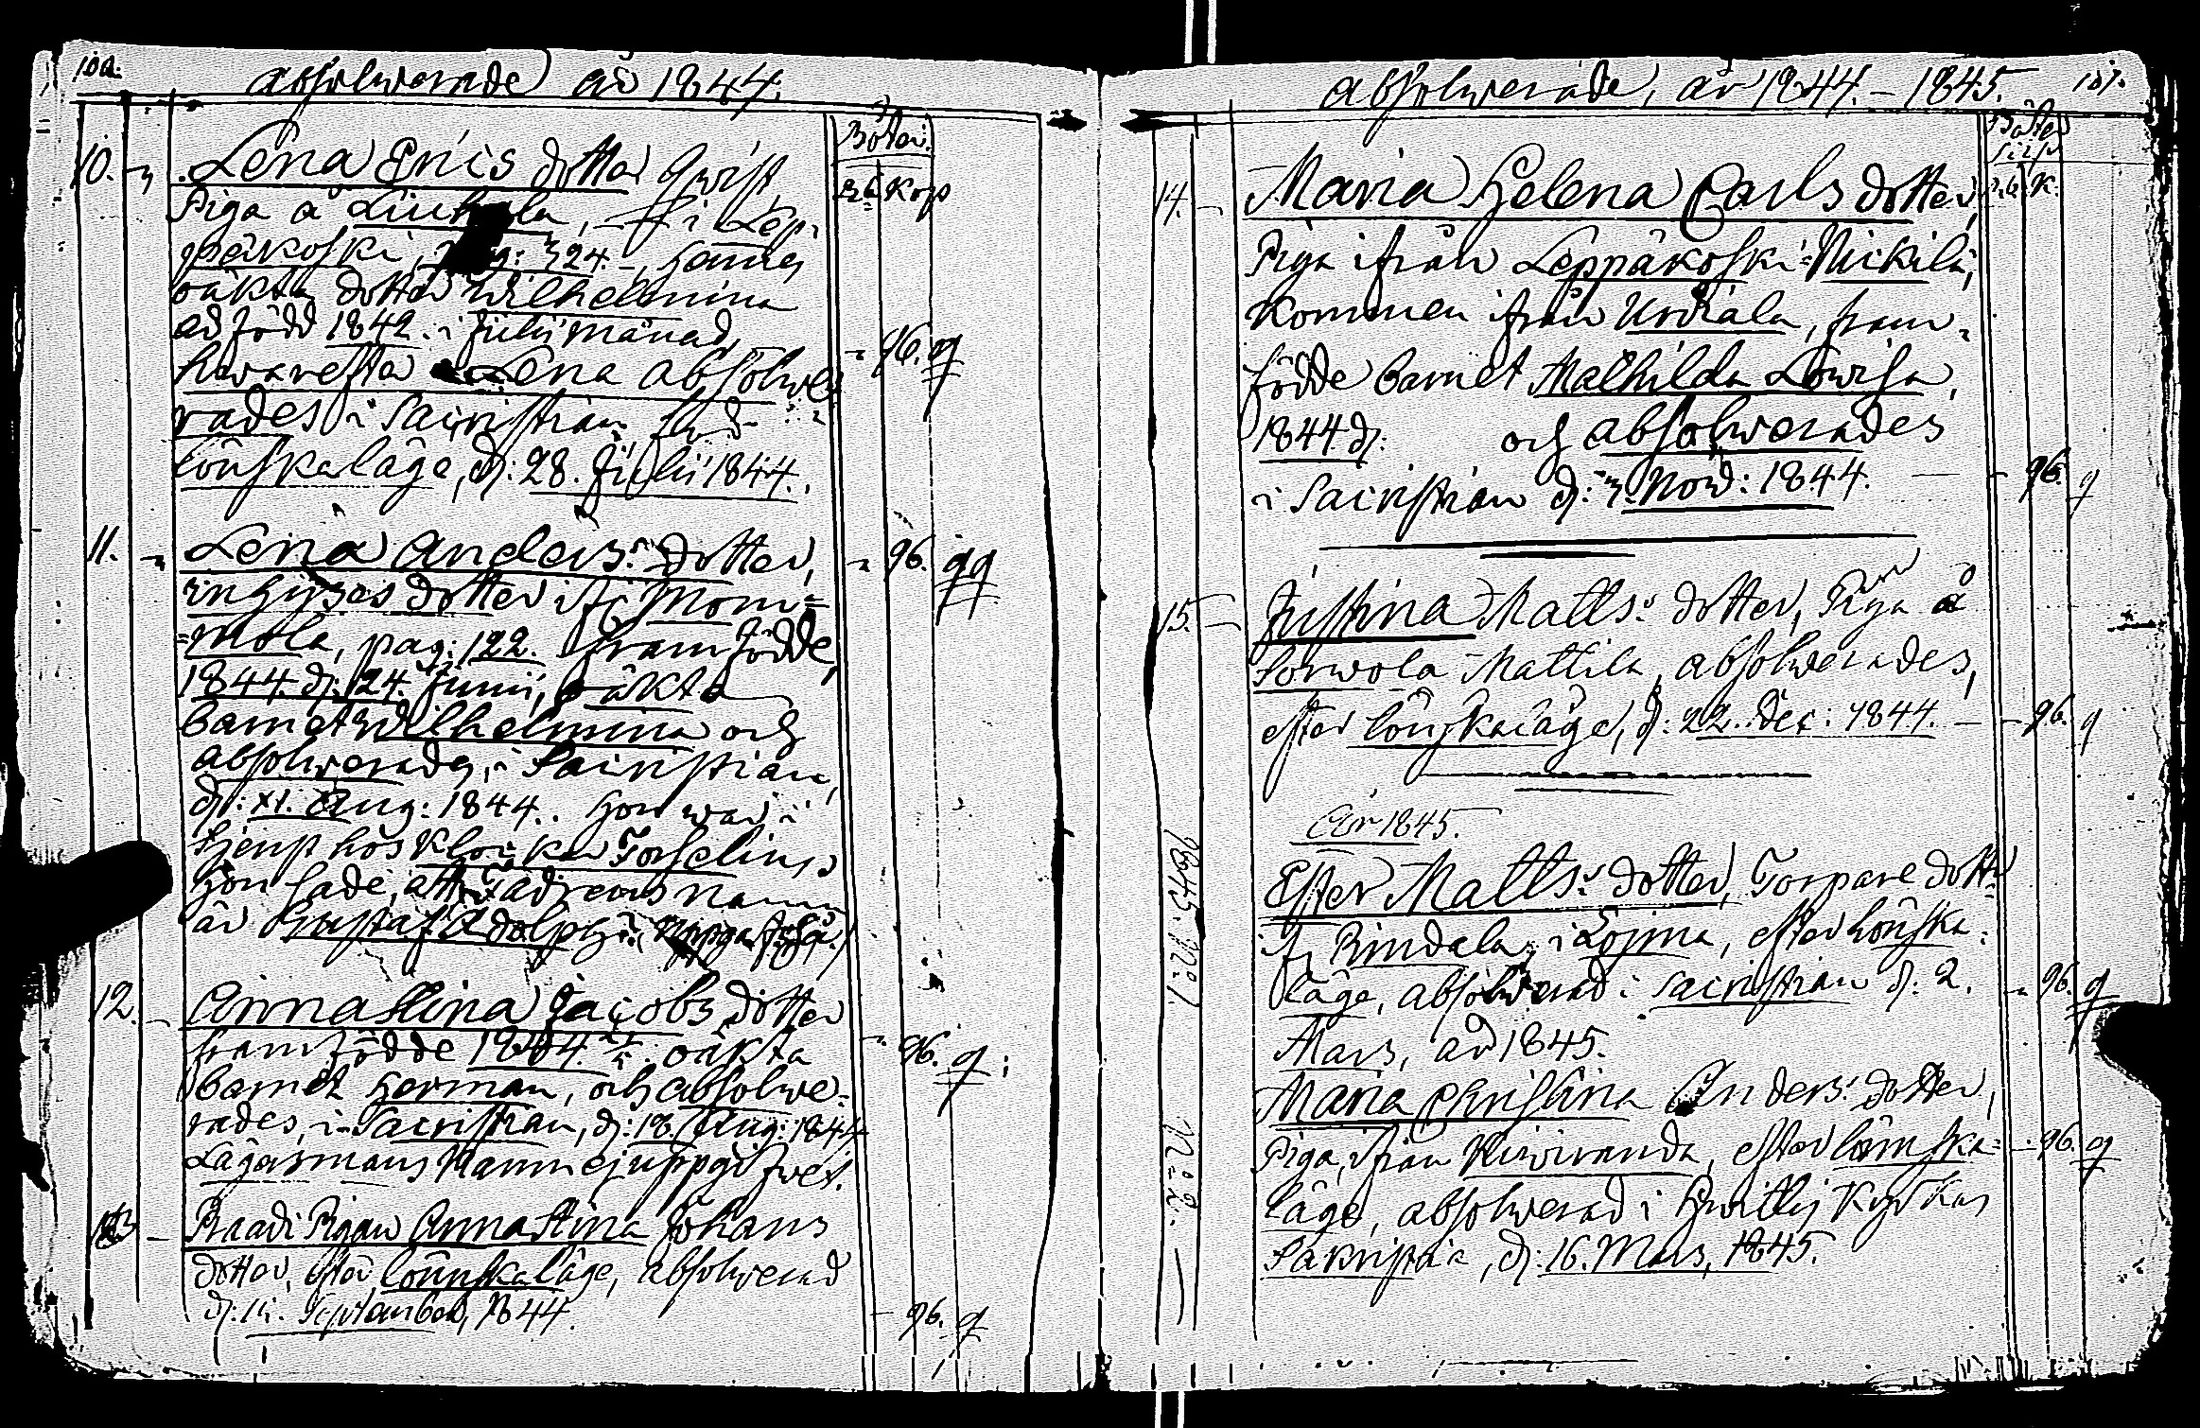 100.
absolverade år 1844.
Böter:
Rub. Kop
10. Lena Erics dotter
Piga å Liuhala, i Lep-
päkoski, pag: 324. hennes
oäkta dotter Wilhelmina
är född 1842. i Julii månad,
hwarefter Lena absolwe-
rades i Sacristian för
lönskaläge, d: 28. Julii 1844.
96. g
11. Lena Anders: dotter,
inhyses dotter ifr. Mom-
=mola, pag: 122. framfödde,
1844. d: 24. Junii, oäkta
barnet Wilhelmina och
absolwerades, i Sacristian,
d: XI. Aug: 1844. Hon war i
tjenst hos Klockar Forselius,
Hon sade, att fadrens namn
är Gustaf Adolph
96. gg
12. Anna Stina Jacobs dotter
framfödde 1844. oäkta
barnet Herman, och absolwe-
rades, i Sacristian, d: 18. Aug: 1844
Lägersmans Namn ej uppgifwet.
96. g
13 Raadi Pigan Anna Stina Johans
dotter, efter lönnskaläge, absolwerad
d: September, 1844.
96. g
absolwerade, år 1844. – 1845. 101.
Böter
Silfv
rub. K.
14. Maria Helena Carls dotter,
Piga ifrån Leppäkoski=Nickilä,
kommen ifrån Urdiala, fram-
födde barnet Mathilda Lowisa,
1844. d: och absolwerades
i Sacristian d: 3. Now: 1844. 96. g
15. Justina Matts: dotter, Piga å
Sorwola Mattila, absolwerades,
efter lönskaläge, d: 22. Dec: 1844. 96. g
År 1845.
1845. N:o 1.
Ester Matts: dotter, Torpare dotter
ifr. Rindala, i Lojma, efter lönska-
läge, absolwerad i Sacristian d: 2.
Mars, år 1845.
96. g
N:o 2.
Maria Christina Anders: dotter,
Piga, ifrån Kiwiranda, efter lönnska=
läge, absolwerad i Hwittis Kyrkas
Sakristia, d: 16. Mars, 1845.
96. g